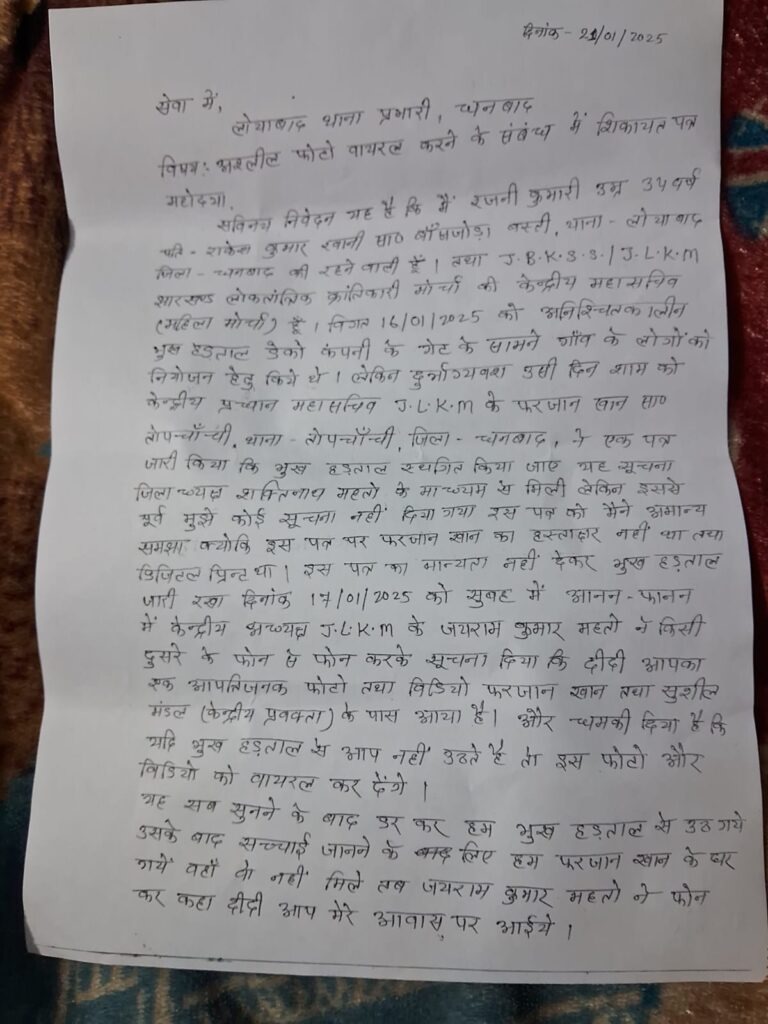 दिनांक - 21/01/2025
सेवा में,
लोयाबाद थाना प्रभारी, धनबाद
विषय: अश्लील फोटो वायरल करने के संबंध में शिकायत पत्र
महोदया,
सविनय निवेदन यह है कि मैं रजनी कुमारी उम्र 34 वर्ष
पति - राकेश कुमार स्वानी सा० बाँसजोड़ा बस्ती, थाना - लोयाबाद
जिला - धनबाद की रहने वाली हूँ। तथा J.B.K.S.S./J.L.K.M
झारखण्ड लोकतांत्रिक क्रांतिकारी मोर्चा की केन्द्रीय महासचिव
(महिला मोर्चा) हूँ। विगत 16/01/2025 को अनिश्चितकालीन
भुख हड़ताल डेको कंपनी के गेट के सामने गाँव के लोगों को
नियोजन हेतु किये थे। लेकिन दुर्भाग्यवश उसी दिन शाम को
केन्द्रीय प्रधान महासचिव J.L.K.M के फरजान खान सा०
तोपचाँची, थाना - तोपचाँची, जिला - धनबाद, ने एक पत्र
जारी किया कि भुख हड़ताल स्थगित किया जाए यह सूचना
जिलाध्यक्ष शक्तिनाथ महतो के माध्यम से मिली लेकिन इससे
पूर्व मुझे कोई सूचना नहीं दिया गया इस पत्र को मैंने अमान्य
समझा क्योंकि इस पत्र पर फरजान खान का हस्ताक्षर नहीं था तथा
डिजिटल प्रिन्ट था। इस पत्र का मान्यता नहीं देकर भुख हड़ताल
जारी रखा दिनांक 17/01/2025 को सुबह में आनन-फानन
में केन्द्रीय अध्यक्ष J.L.K.M के जयराम कुमार महतो ने किसी
दुसरे के फोन से फोन करके सूचना दिया कि दीदी आपका
एक आपतिजनक फोटो तथा विडियो फरजान खान तथा सुशील
मंडल (केन्द्रीय प्रवक्ता) के पास आया है। और धमकी दिया है कि
यदि भुख हड़ताल से आप नहीं उठते है तो इस फोटो और
विडियो को वायरल कर देंगे।
यह सब सुनने के बाद डर कर हम भुख हड़ताल से उठ गये
उसके बाद सच्चाई जानने के लिए हम फरजान खान के घर
गये वहाँ वो नहीं मिले तब जयराम कुमार महतो ने फोन
कर कहा दीदी आप मेरे आवास पर आईये।